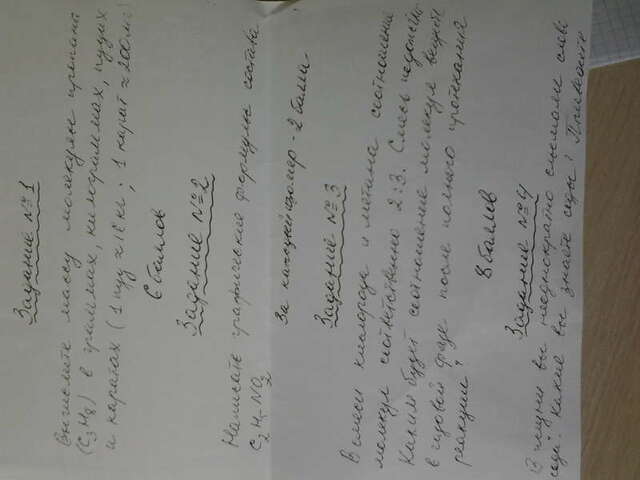 Задание №1
Вычислите массу молекулы пропана
(C3H8) в граммах, килограммах, пудах
и каратах (1 пуд ≈ 16 кг; 1 карат ≈ 200 мг)
6 баллов
Задание №2
Напишите графические формулы состава
C2H5NO2
За каждый изомер - 2 балл
Задание №3
В смеси кислорода и метана соотношение
молекул соответственно 2:3. Смесь
Каким будет соотношение молекул веществ
в газовой фазе после полного протекания
реакции?
8 баллов
Задание №4
В жизни вы неоднократно слышали слово
сода. Какие вы знаете соды? Приведите